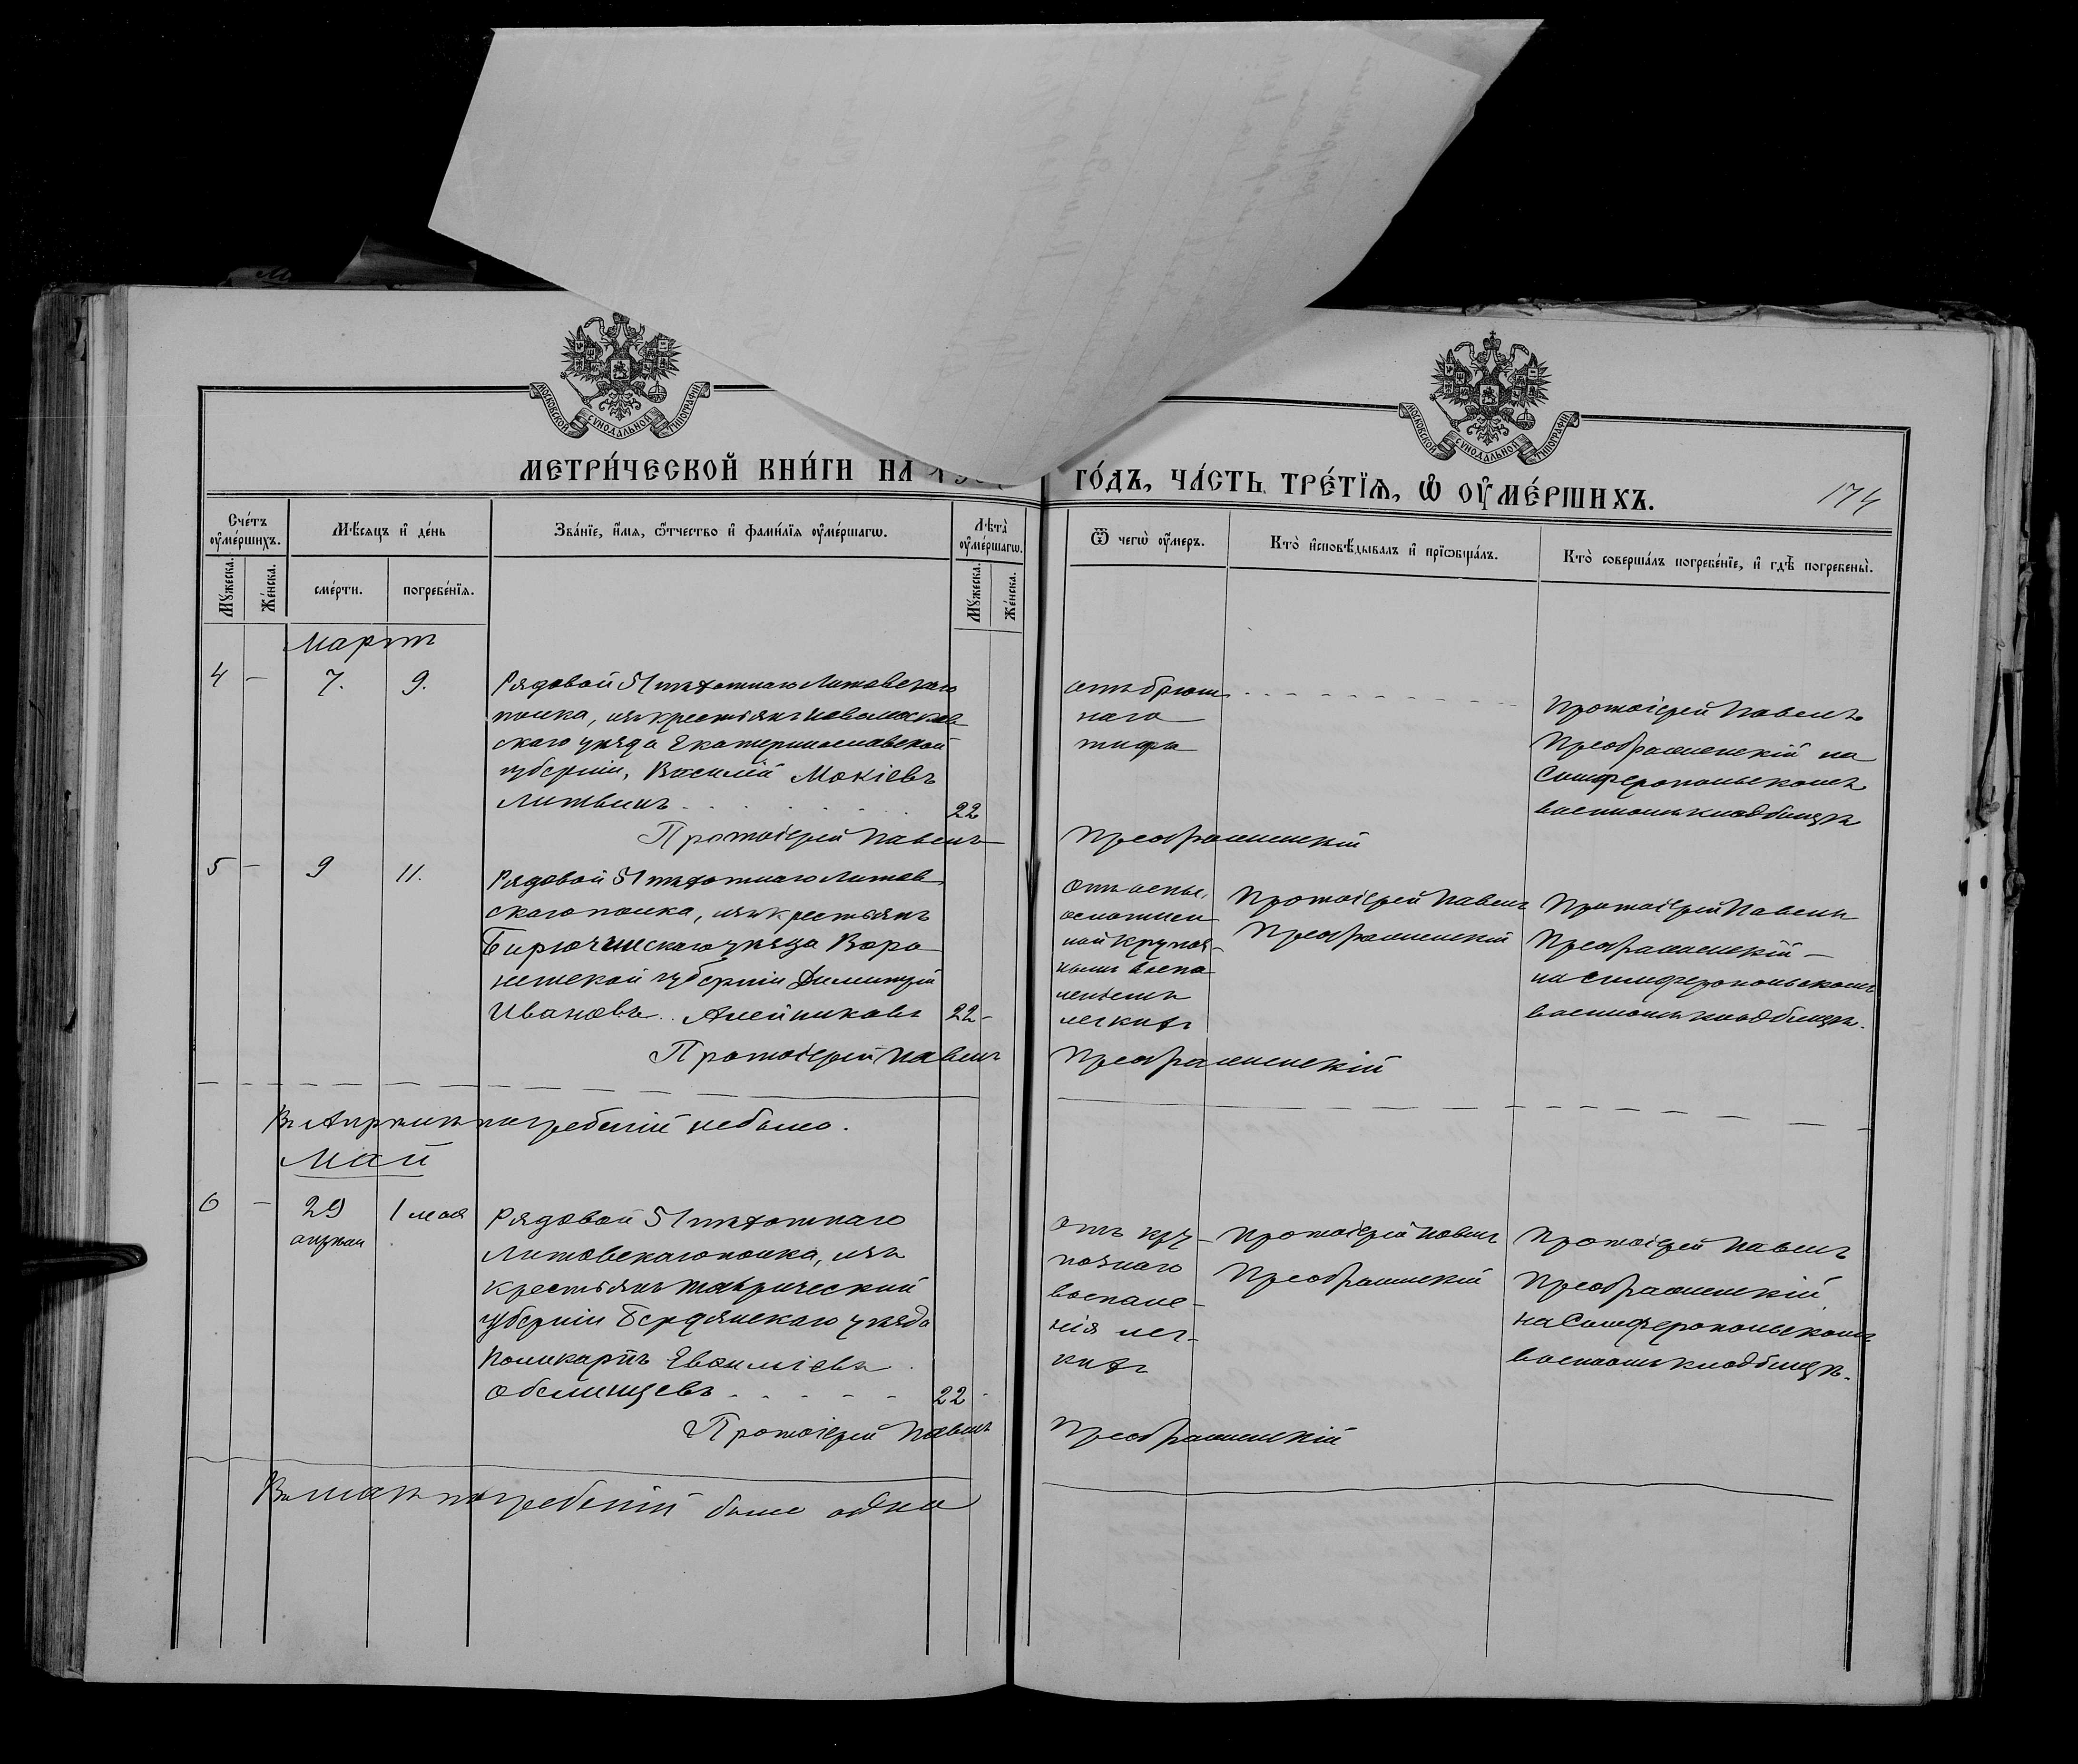 МОСКОВСКОЙ СѴНОДАЛЬНОЙ ТИПОГРАФІИ
МОСКОВСКОЙ СѴНОДАЛЬНОЙ ТИПОГРАФІИ
МЕТРИ́ЧЕСКОЙ КНИ́ГИ НА
ГО́ДЪ, ЧА́СТЬ ТРЕ́ТІѦ, Ѡ҆ ОУ҆МЕ́РШИХЪ.
174
Сче́тъ оу҆ме́ршихъ.
Мѣ́сяцъ и҆ де́нь
Зва́нїе, и҆́мя, ѻ҆́тчество и҆ фами́лїя оу҆ме́ршагѡ.
Лѣта̀ оу҆ме́ршагѡ.
Ѿ чегѡ̀ оу҆́меръ.
Кто̀ и҆сповѣ́дывалъ и҆ прїѡбща́лъ.
Кто̀ соверша́лъ погребе́нїе, и҆ гдѣ̀ погребены̀.
Мꙋ́жеска.
Же́нска.
сме́рти.
погребе́нїя.
Мꙋ́жеска.
Же́нска.
Мартъ
4 - 7. 9.
Рядовой 51 пѣхотнаго Литовскаго
полка, изъ крестьянъ
скаго уѣзда Екатеринославской
губерніи, Василій Мокіевъ
Литвинъ 22
Протоіерей Павелъ Преображенскій
отъ брюш
наго
тифа
Протоіерей Павелъ
Преображенскій на
Симферопольскомъ
военномъ кладбищѣ
5 - 9 11.
Рядовой 51 пѣхотнаго Литов
скаго полка, изъ крестьянъ
Бирюченскаго уѣзда Воро
нежской губерніи Димитрій
Ивановъ Алейниковъ 22 -
Протоіерей Павелъ Преображенскій
Отъ оспы,
осложнен
ной крупоз-
нымъ воспа
леніемъ
легкихъ
Протоіерей Павелъ
Преображенскій
Протоіерей Павелъ
Преображенскій -
на Симферопольскомъ
военномъ кладбищѣ.
Въ Апрѣлѣ погребеній не было.
Май
6 - 29 апрѣля 1 мая
Рядовой 51 пѣхотнаго
Литовскаго полка, изъ
крестьянъ Таврической
губерніи Бердянскаго уѣзда
Поликарпъ
22 -
Протоіерей Павелъ Преображенскій
Отъ кру-
познаго
воспале-
нія лег-
кихъ
Протоіерей Павелъ
Преображенскій
Протоіерей Павелъ
Преображенскій
на Симферопольскомъ
военномъ кладбищѣ.
Въ маѣ погребеній было одно